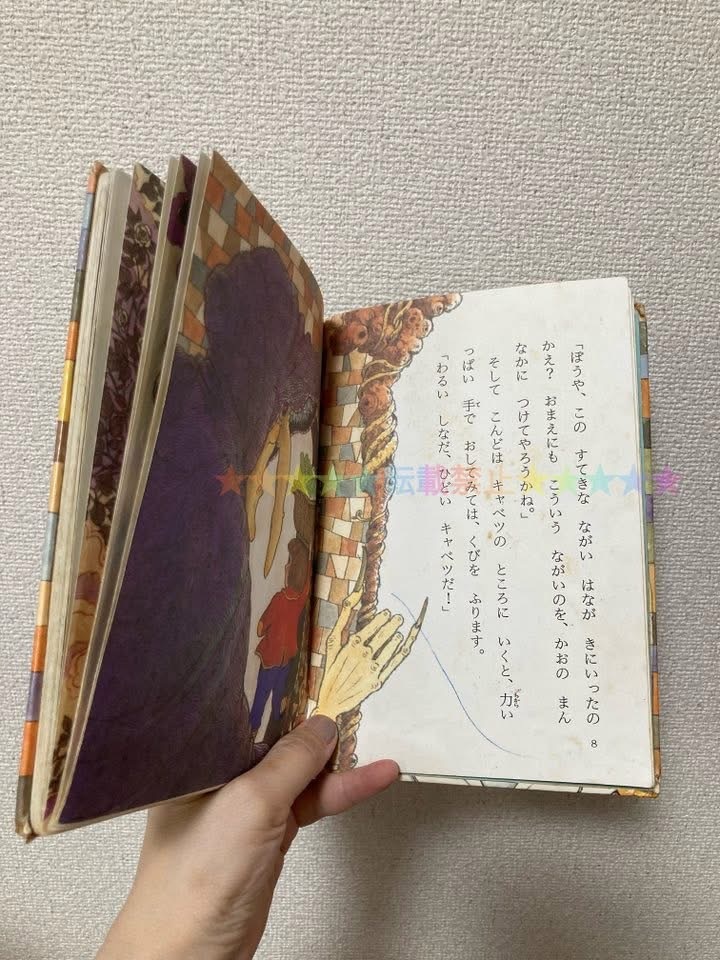 「ぼうや、この　すてきな　ながい　はなが　きにいったの
かえ？　おまえにも　こういう　ながいのを、かおの　まん
なかに　つけてやろうかね。」
そして　こんどは　キャベツの　ところに　いくと、力い
ちから
っぱい　手で　おしてみては、くびを　ふります。
て
「わるい　しなだ、ひどい　キャベツだ！」
8
★★★★★転載禁止★★★★★